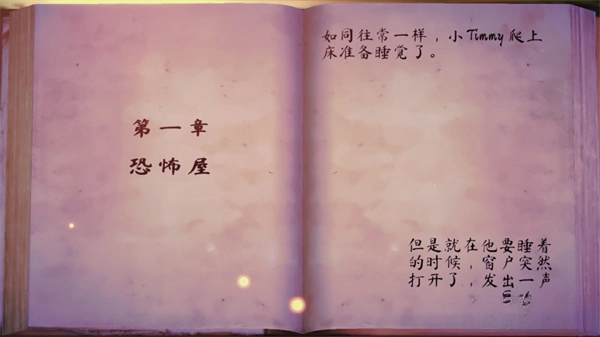 第一章
恐怖屋
如同往常一样，小Timmy爬上
床准备睡觉了。
但是就在他要睡着
的时候，窗户突然
打开了，发出一声